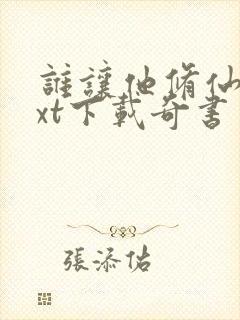 誰讓他脩仙t
xt下載奇書
張添佑